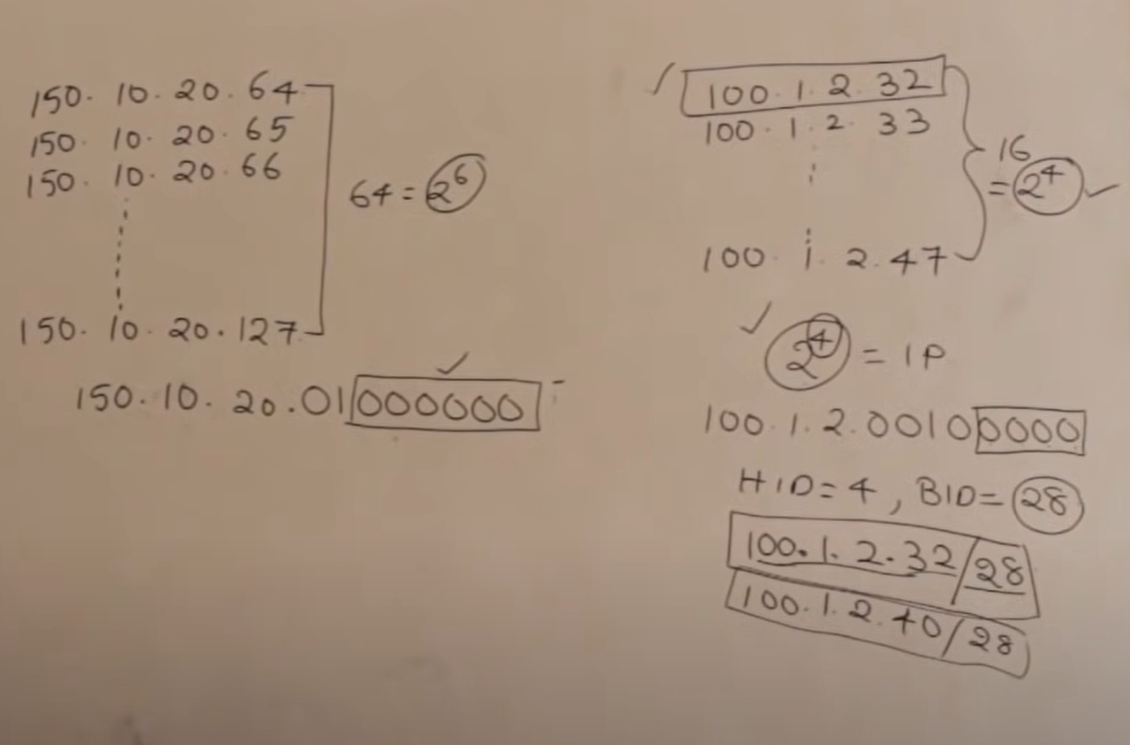 150. 10. 20. 64
150. 10. 20. 65
150. 10. 20. 66
64 = 2^6
150. 10. 20. 127
150. 10. 20. 01000000
100. 1. 2. 32
100. 1. 2. 33
16
= 2^4
100. 1. 2. 47
2^4 = IP
100. 1. 2. 00100000
HID = 4, BID = 28
100. 1. 2. 32/28
100. 1. 2. 40/28